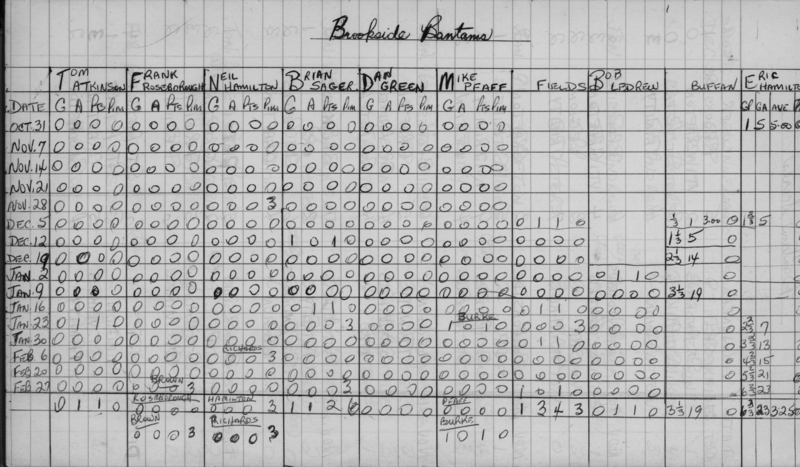 Brookside Bantams
TOM ATKINSON FRANK ROSEBOROUGH NEIL HAMILTON BRIAN SAGER DAN GREEN MIKE PFAFF FIELDS BOB LEDREW BUFFAN ERIC HAMILT
DATE G A PTS PIM G A PTS PIM G A PTS PIM G A PTS PIM G A PTS PIM G A PTS PIM GP GA AVE
OCT. 31 0 0 0 0 0 0 0 0 0 0 0 0 0 0 0 0 0 0 0 0 0 0 0 0 1 5 5.00 0
NOV. 7 0 0 0 0 0 0 0 0 0 0 0 0 0 0 0 0 0 0 0 0 0 0 0 0
NOV. 14 0 0 0 0 0 0 0 0 0 0 0 0 0 0 0 0 0 0 0 0 0 0 0 0
NOV. 21 0 0 0 0 0 0 0 0 0 0 0 0 0 0 0 0 0 0 0 0 0 0 0 0
NOV. 28 0 0 0 0 0 0 0 0 0 0 0 3 0 0 0 0 0 0 0 0 0 0 0 0
DEC. 5 0 0 0 0 0 0 0 0 0 0 0 0 0 0 0 0 0 0 0 0 0 0 0 0 0 1 1 0 1/3 1 3.00 0 5
DEC. 12 0 0 0 0 0 0 0 0 0 0 0 0 1 0 1 0 0 0 0 0 0 0 0 0 0 0 0 0 1 1/3 5 0
DEC. 19 0 0 0 0 0 0 0 0 0 0 0 0 0 0 0 0 0 0 0 0 0 0 0 0 2 1/3 14 0
JAN. 2 0 0 0 0 0 0 0 0 0 0 0 0 0 0 0 0 0 0 0 0 0 0 0 0 0 0 0 0 0 1 1 0 0
JAN. 9 0 0 0 0 0 0 0 0 0 0 0 0 0 0 0 0 0 0 0 0 0 0 0 0 0 0 0 0 0 0 0 0 3 1/3 19 0
JAN. 16 0 0 0 0 0 0 0 0 0 0 0 0 0 1 1 0 0 0 0 0 0 0 0 0 0 1 1 0 0 0 0 0 0
BURKE
JAN. 23 0 1 1 0 0 0 0 0 0 0 0 0 0 0 0 3 0 0 0 0 1 0 1 0 0 0 0 3 0 0 0 0 0 7
JAN. 30 0 0 0 0 0 0 0 0 0 0 0 0 0 0 0 0 0 0 0 0 0 0 0 0 0 1 1 0 0 0 0 0 0 13
RICHARDS
FEB 6 0 0 0 0 0 0 0 0 0 0 0 3 0 0 0 0 0 0 0 0 0 0 0 0 0 0 0 0 0 0 0 0 0 15
FEB. 20 0 0 0 0 0 0 0 0 0 0 0 0 0 0 0 0 0 0 0 0 0 0 0 0 0 0 0 0 0 0 0 0 0 21
BROWN
FEB. 27 0 0 0 0 0 0 0 3 0 0 0 0 0 0 0 3 0 0 0 0 0 0 0 0 1 0 1 0 0 0 0 0 0 23
ROSEBOROUGH HAMILTON PFAFF
0 1 1 0 0 0 0 0 0 0 0 3 1 1 2 6 0 0 0 0 0 0 0 0 1 3 4 3 0 1 1 0 3 1/3 19 0 23 3.25 0
BROWN RICHARDS BURKE
0 0 0 3 0 0 0 3 1 0 1 0